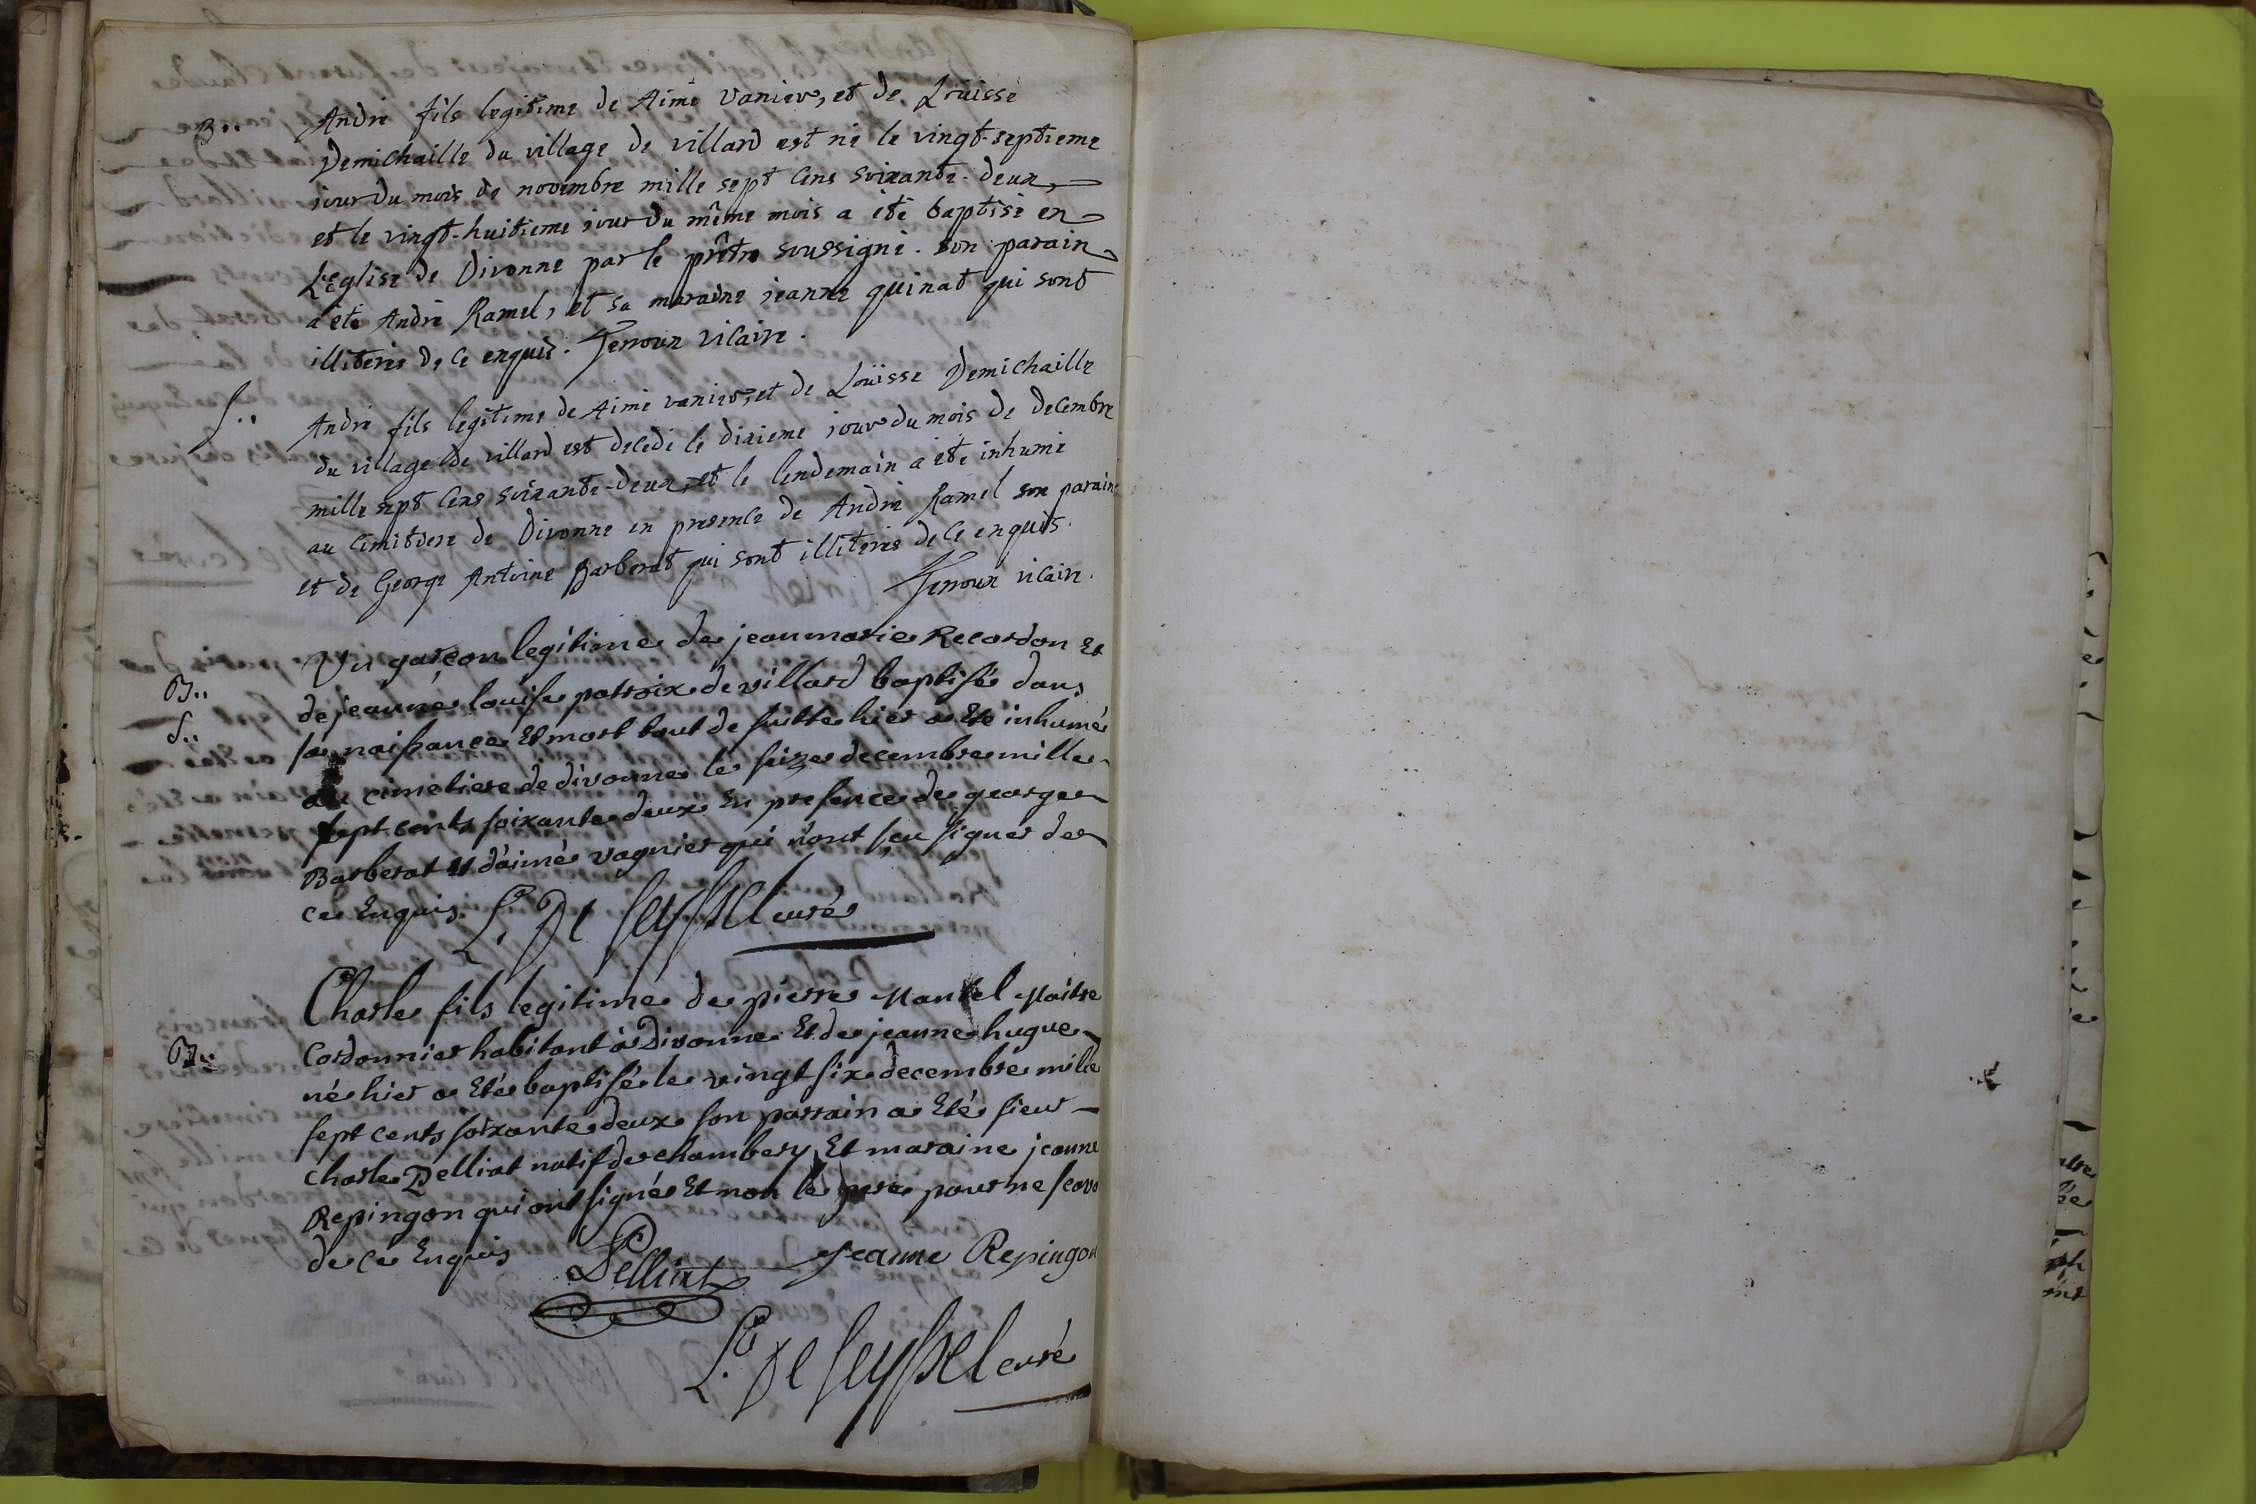 B..
André fils legitime de Aimé vanier, et de Loüisse
Demichaille du village de villard est né le vingt-septieme
jour du mois de novembre mille sept cens soixante-deux,
et le vingt-huitieme jour du même mois a été baptisé en
L'eglise de Divonne par le prêtre soussigné. son parain
a été André Ramel, et sa maraine jeanne quinat qui sont
illiterés de ce enquis. Jenoux vicaire.
S..
André fils legitime de Aimé vanier, et de Loüisse Demichaille
du village de villard est decedé le dixieme jour du mois de decembre
mille sept cens soixante-deux, et le lendemain a été inhumé
au cimitiere de Divonne en presence de André Ramel son parain
et de George Antoine Barberat qui sont illiterés de ce enquis.
Jenoux vicaire.
B..
S..
Un garçon legitime de jean marie Recordon Et
de jeanne louise patroix de villard baptisé dans
sa naissance Et mort tout de suitte hier a Eté inhumé
au cimetiere de divonne le seize decembre mille
sept cents soixante deux En presence de george
Barberat et d'aimé vagnier qui n'ont sçu signer de
ce Enquis. L. De Seyssel curé
B..
Charle fils legitime de pierre Mantel Maitre
Cordonnier habitant à Divonne Et de jeanne hugue
né hier a Eté baptisé le vingt six decembre mille
sept cents soixante deux son parrain a Eté sieur
charle Pelliat natif de chambery Et maraine jeanne
Repingon qui ont signé Et non le pere pour ne scavo
de ce Enquis
Pelliat Jeanne Repingon
L. De Seyssel curé